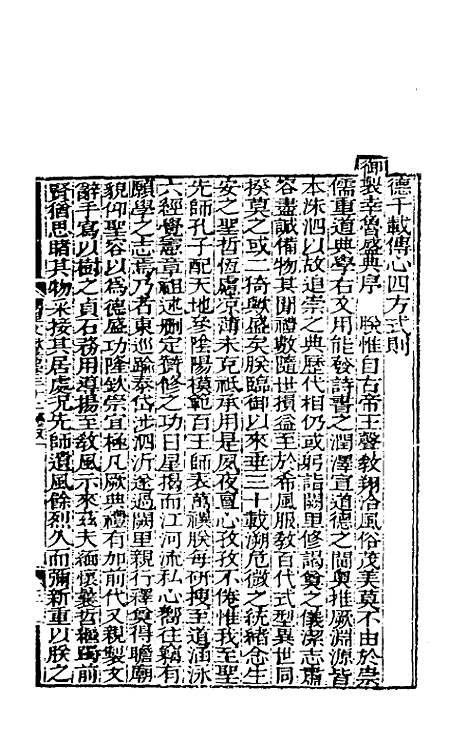 德千載傳心四方式則
御製幸魯盛典序　朕惟自古帝王聲教翔洽風俗茂美莫不由於崇
儒重道典學右文用能發詩書之潤澤宣道德之閫奧推厥淵源皆
本洙泗以故追崇之典歷代相仍或躬詣闕里修謁奠之儀潔志肅
容盡誠備物其閒禮數隨世損益至於希風服教百代式型異世同
揆莫之或二猗歟盛矣朕臨御以來垂三十載溯危微之統緒念生
安之聖哲恆慮涼薄未克祗承用是夙夜亶心孜孜不倦惟我至聖
先師孔子配天地參陰陽模範百王師表萬禩朕每研搜至道涵泳
六經覺憲章祖述刪定贊修之功日星揭而江河流私心嚮往竊有
願學之志焉乃者東巡踰泰岱涉泗沂遂過闕里親行釋奠得瞻廟
貌仰聖容以爲德盛功隆欽崇宜極凡厥典禮有加前代又親製文
辭手寫以樹之貞石務用導揚至教風示來茲夫緬懷曩哲樞躅前
賢猶思睹其物采接其居處况先師遺風餘烈久而彌新重以朕之